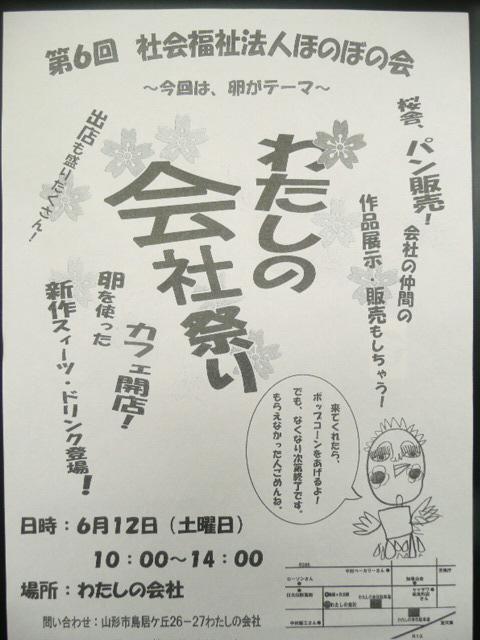 第6回 社会福祉法人ほのぼの会
～今回は、卵がテーマ～
わたしの
会社祭り
桜舎、パン販売！
会社の仲間の
作品展示・販売もしちゃう！
出店も盛りだくさん！
卵を使った
カフェ開店！
新作スィーツ・ドリンク登場！
来てくれたら、
ポップコーンをあげるよ！
でも、なくなり次第終了です。
もらえなかった人ごめんね。
日時：6月12日（土曜日）
10：00～14：00
場所：わたしの会社
問い合わせ：山形市鳥居ケ丘26－27わたしの会社
ローソンさん
わたしの会社